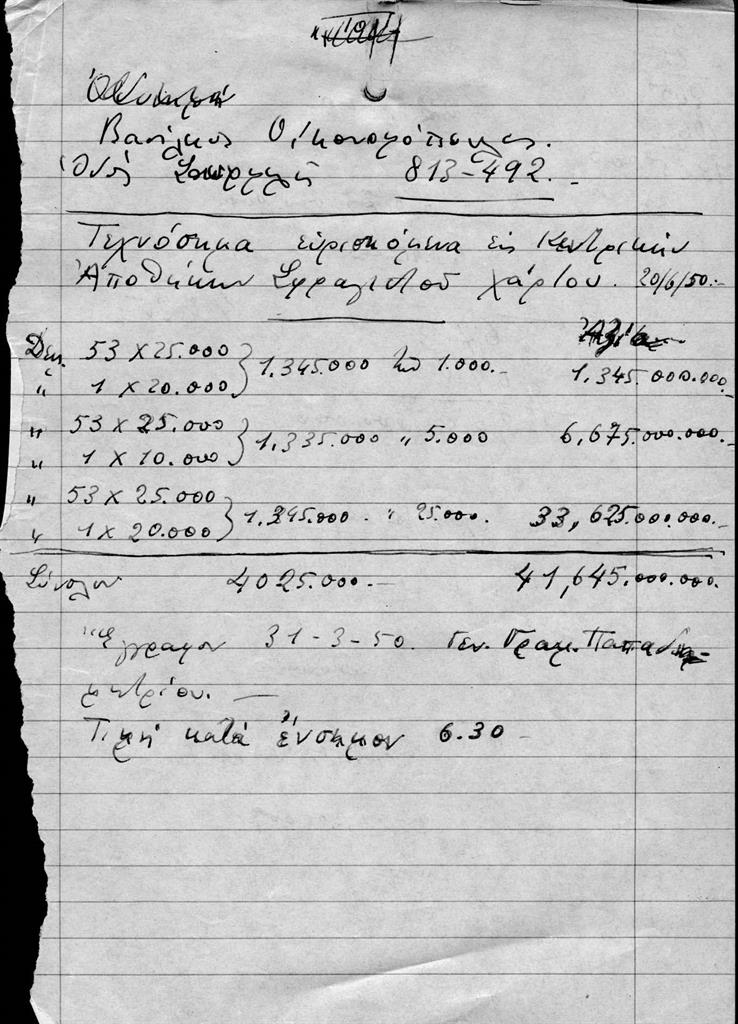 Βασίλειος Οικονομόπουλος.
813-492.-
Τεχνόσημα εὑρισκόμενα εἰς Κεντρικὴν
Ἀποθήκην Σφραγιστοῦ χάρτου. 20/6/50.-
Ἀξία
53 x 25.000
1 x 20.000 } 1.345.000 1.000.- 1,345.000.000.-
" 53 x 25.000
" 1 x 10.000 } 1,335.000 " 5.000 6,675.000.000.-
" 53 x 25.000
" 1 x 20.000 } 1.345.000. " 25.000. 33,625.000.000.-
Σύνολον 4025.000.- 41,645.000.000.
Ἔγγραφον 31-3-50. Γεν. Γραμ. Παπαδη-
μητρίου.-
Τιμὴ κατὰ ἔνσημον 6.30-